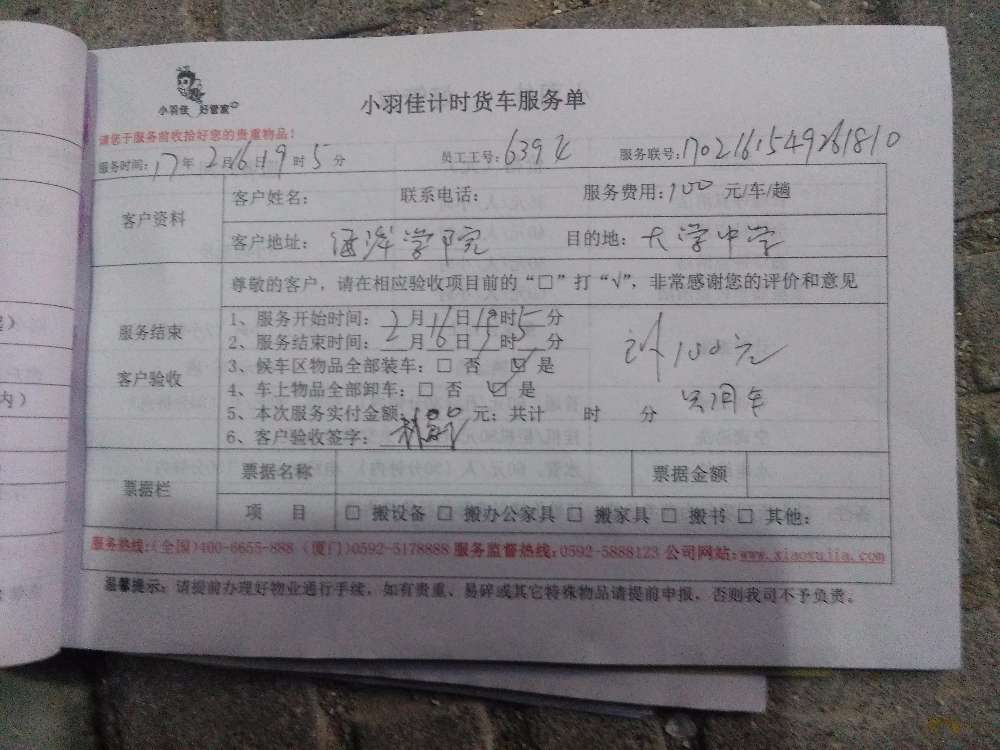 小羽佳 好管家
小羽佳计时货车服务单
请您于服务前收拾好您的贵重物品！
服务时间：17年2月16日19时5分 员工工号：639 服务联号：170216154926 1810
客户资料
客户姓名： 联系电话： 服务费用：100元/车/趟
客户地址：海洋学院 目的地：大学中学
服务结束
客户验收
尊敬的客户，请在相应验收项目前的“□”打“√”，非常感谢您的评价和意见
1、服务开始时间：2月16日19时5分
2、服务结束时间：2月16日时5分
3、候车区物品全部装车：□ 否 ☑ 是
4、车上物品全部卸车：□ 否 ☑ 是
5、本次服务实付金额：100元；共计 时 分
6、客户验收签字：
计100元
票据栏
票据名称 票据金额
项 目 □ 搬设备 □ 搬办公家具 □ 搬家具 □ 搬书 □ 其他：
服务热线：(全国)400-6655-888 (厦门)0592-5178888 服务监督热线：0592-5888123 公司网站：www.xiaoyujia.com
温馨提示：请提前办理好物业通行手续，如有贵重、易碎或其它特殊物品请提前申报，否则我司不予负责。